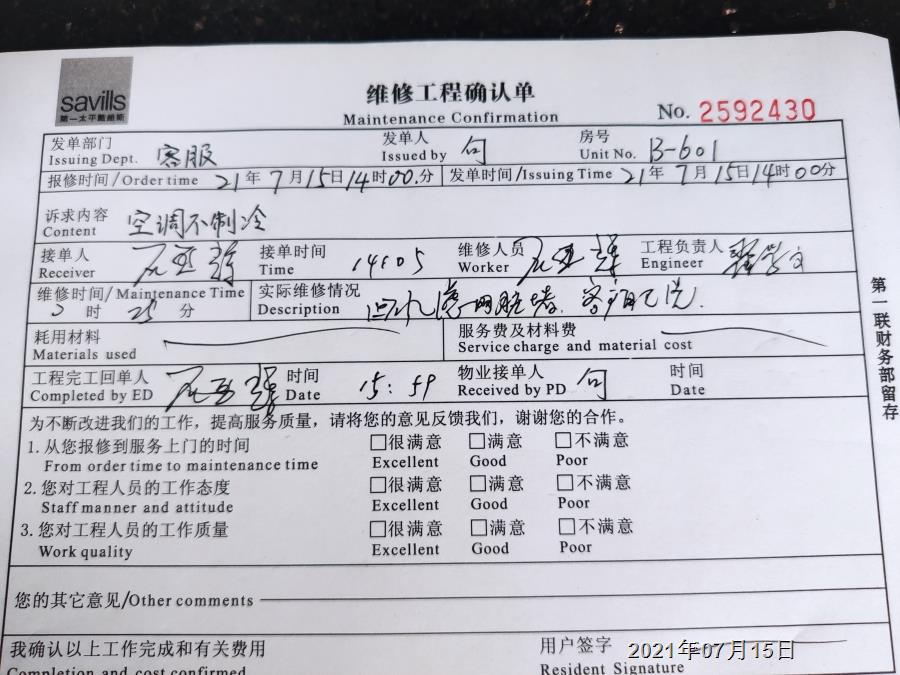 savills
第一太平戴维斯
维修工程确认单
Maintenance Confirmation
No. 2592430
发单部门 客服 发单人 句 房号 B-601
Issuing Dept. Issued by Unit No.
报修时间/Order time 21年7月15日14时00分 发单时间/Issuing Time 21年7月15日14时00分
诉求内容 空调不制冷
Content
接单人 接单时间 14:05 维修人员 工程负责人
Receiver Time Worker Engineer
维修时间/Maintenance Time 实际维修情况
时 25分 Description
耗用材料 服务费及材料费
Materials used Service charge and material cost
工程完工回单人 时间 15:59 物业接单人 句 时间
Completed by ED Date Received by PD Date
为不断改进我们的工作，提高服务质量，请将您的意见反馈我们，谢谢您的合作。
1.从您报修到服务上门的时间 □很满意 □满意 □不满意
From order time to maintenance time Excellent Good Poor
2.您对工程人员的工作态度 □很满意 □满意 □不满意
Staff manner and attitude Excellent Good Poor
3.您对工程人员的工作质量 □很满意 □满意 □不满意
Work quality Excellent Good Poor
您的其它意见/Other comments
我确认以上工作完成和有关费用 用户签字
Completion and cost confirmed Resident Signature
2021年07月15日
第一联财务部留存